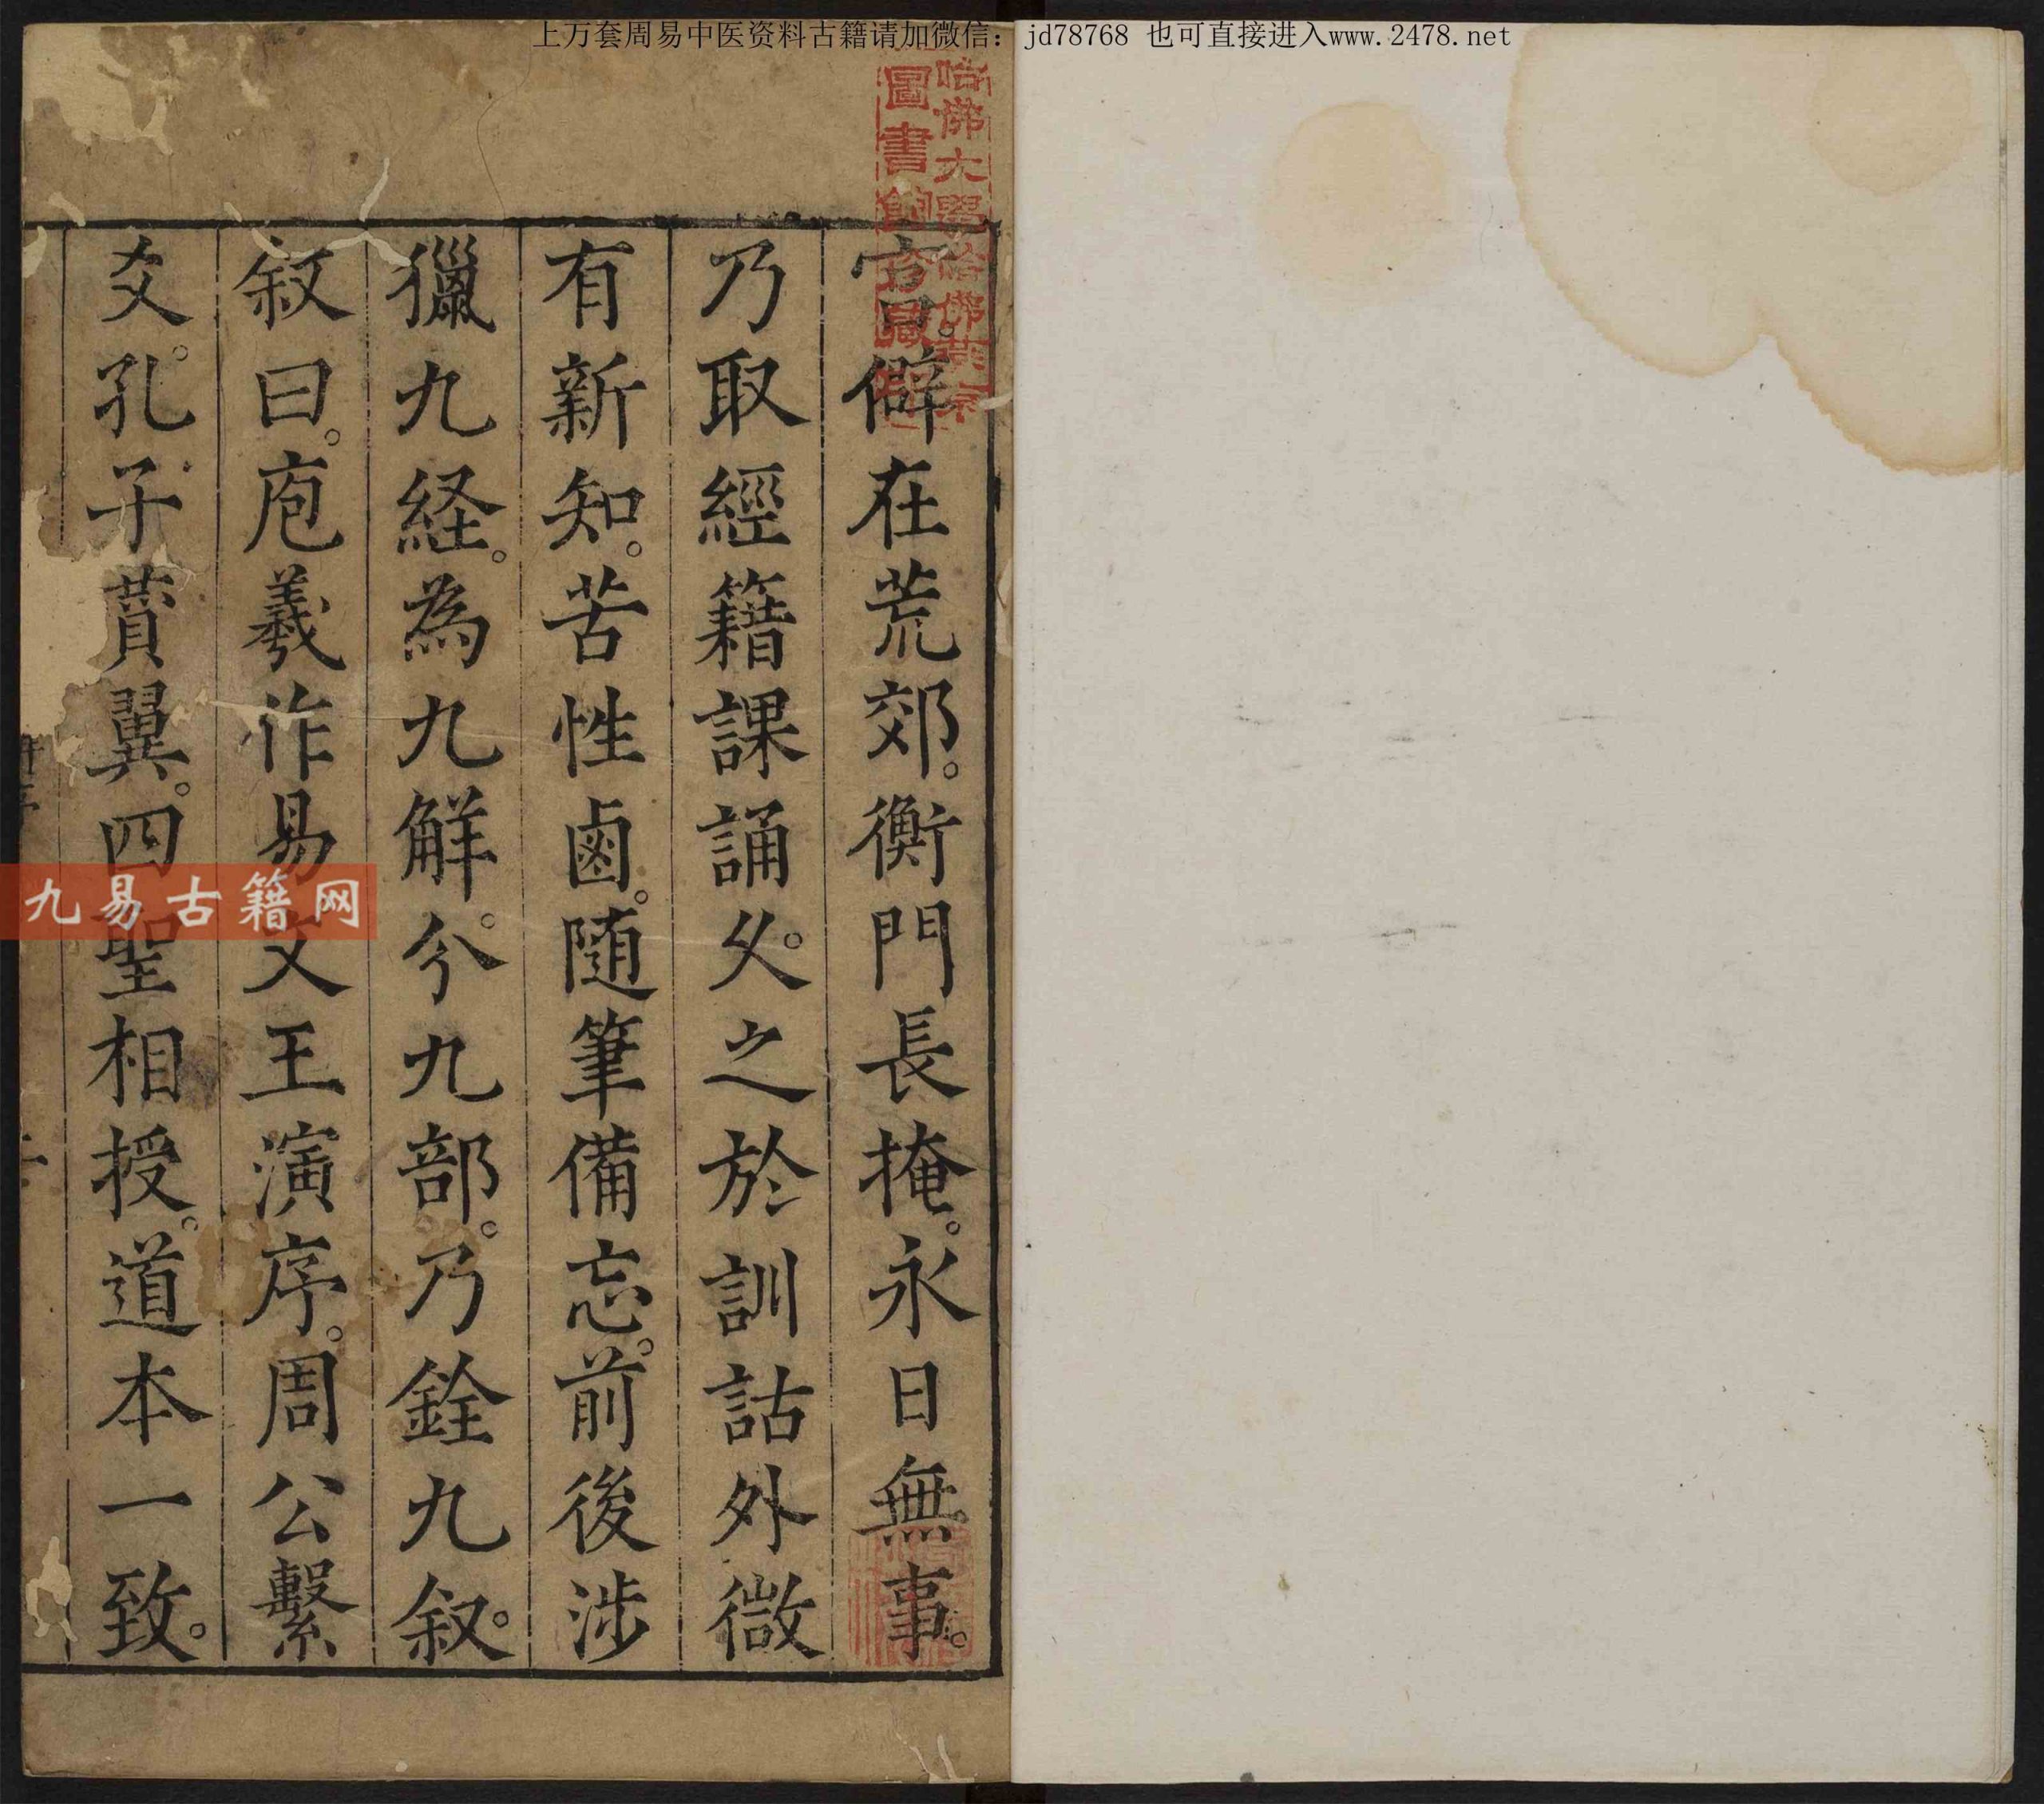 上万套周易中医资料古籍请加微信：jd78768 也可直接进入www.2478.net
哈佛大學哈佛燕京
圖書館
僻在荒郊。衡門長掩。永日無事。
乃取經籍課誦乆。之於訓詁外微
有新知。苦性鹵。随筆備忘。前後涉
獵九経。為九解。兮九部。乃銓九叙。
叙曰。庖羲作易文王演序。周公繫
爻。孔子賛翼。四聖相授。道本一致。
九易古籍网